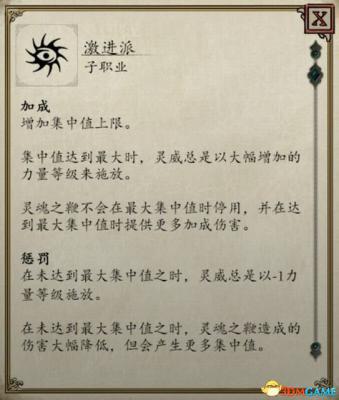 X
激进派
子职业
加成
增加集中值上限。
集中值达到最大时，灵威总是以大幅增加的
力量等级来施放。
灵魂之鞭不会在最大集中值时停用，并在达
到最大集中值时提供更多加成伤害。
惩罚
在未达到最大集中值之时，灵威总是以-1力
量等级施放。
在未达到最大集中值之时，灵魂之鞭造成的
伤害大幅降低，但会产生更多集中值。
3DMGAME